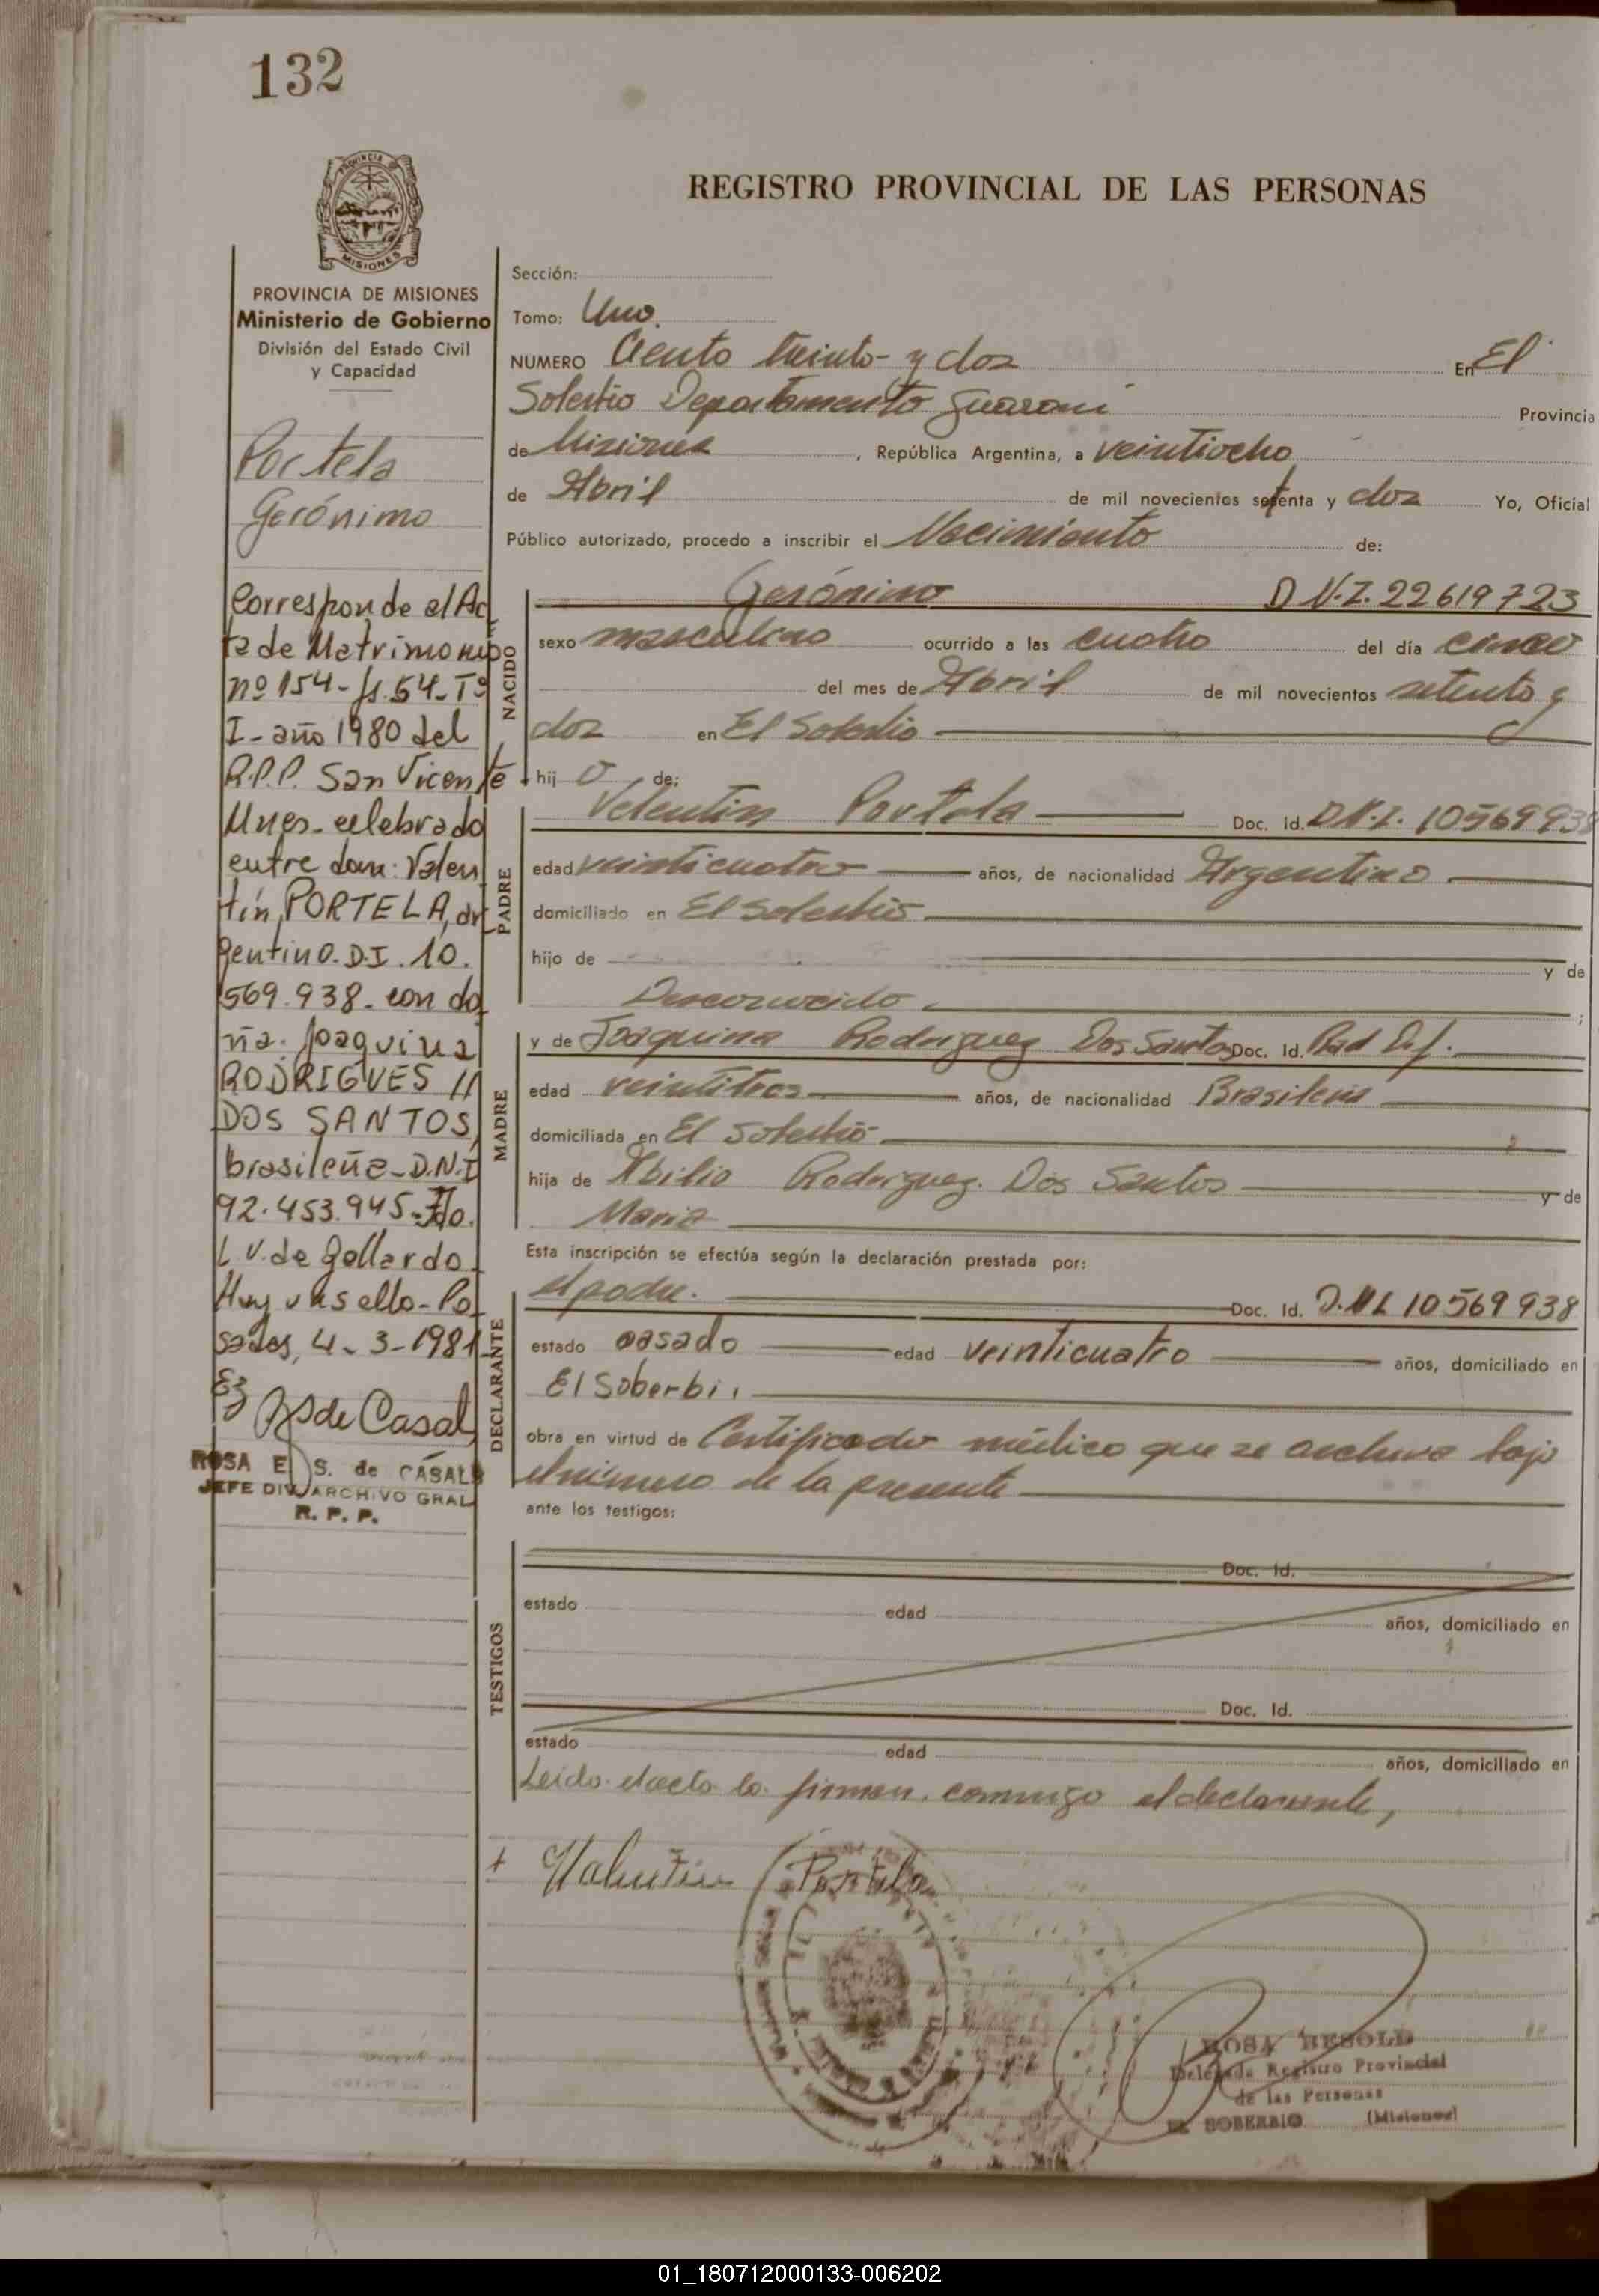 132
PROVINCIA DE
MISIONES
REGISTRO PROVINCIAL DE LAS PERSONAS
PROVINCIA DE MISIONES
Ministerio de Gobierno
División del Estado Civil
y Capacidad
Portela
Gerónimo
Corresponde al Ac
ta de Matrimonio
nº 154 - fs. 54 - Tº
I - año 1980 del
R.P.P. San Vicente
Mnes. celebrado
entre don: Valen
tín PORTELA, ar
gentino. D.I. 10.
569.938 - con do
ña: Joaquina
RODRIGUES
DOS SANTOS,
brasileña - D.N.I
92.453.945 -
L.V. de Gallardo
Po
sadas, 4 - 3 - 1981
de Casal
ROSA E. S. de CASAL
JEFE DIV. ARCHIVO GRAL
R. P. P.
Sección:
Tomo: Uno.
NUMERO Ciento treinta y dos En El
Soberbio Departamento Guaraní Provincia
de Misiones, República Argentina, a veintiocho
de Abril de mil novecientos setenta y dos Yo, Oficial
Público autorizado, procedo a inscribir el Nacimiento de:
NACIDO
Gerónimo D.N.I. 22619723
sexo masculino ocurrido a las cuatro del día cinco
del mes de Abril de mil novecientos setenta y
dos en El Soberbio
hij o de:
PADRE
Valentin Portela Doc. Id. D.N.I. 10569938
edad veinticuatro años, de nacionalidad Argentino
domiciliado en El Soberbio
hijo de y de
Desconocido ;
MADRE
y de Joaquina Rodriguez Dos Santos Doc. Id.
edad veintitres años, de nacionalidad Brasileña
domiciliada en El Soberbio
hija de Abilio Rodriguez Dos Santos y de
Maria
Esta inscripción se efectúa según la declaración prestada por:
DECLARANTE
el padre. Doc. Id. D.N.I. 10569938
estado casado edad veinticuatro años, domiciliado en
El Soberbio
obra en virtud de Certificado médico que se archiva bajo
el número de la presente
ante los testigos:
TESTIGOS
Doc. Id.
estado edad años, domiciliado en
Doc. Id.
estado edad años, domiciliado en
Leida el acta la firman conmigo el declarante,
Valentin Portela
ROSA BESOLD
Delegada Registro Provincial
de las Personas
EL SOBERBIO (Misiones)
01_180712000133-006202